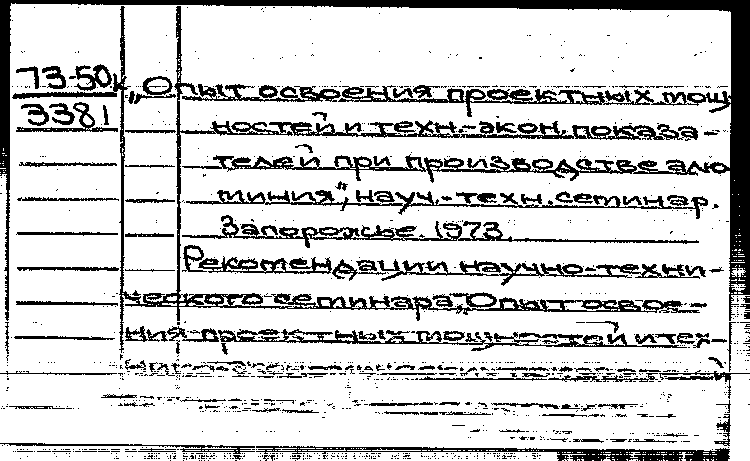 73-50к
3381
„Опыт освоения проектных мощ-
ностей и техн.-экон. показа-
телей при производстве алю
миния", науч.-техн. семинар.
Запорожье. 1973.
Рекомендации научно-техни-
ческого семинара „Опыт освое-
ния проектных мощностей и тех-